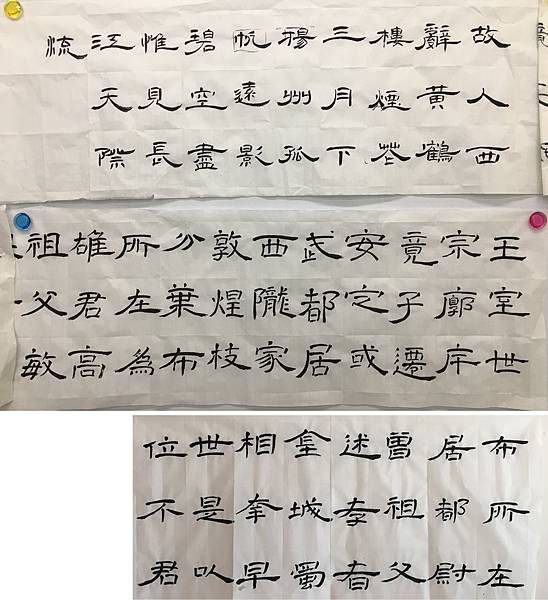 故人西
辭黃鶴
樓煙花
三月下
揚州孤
帆遠影
碧空盡
惟見長
江天際
流
王室世
宗廓斥
竟子遷
安定或
武都居
西隴家
敦煌枝
分葉布
所左為
雄君高
祖父敏
布所在
居都尉
曾祖父
述孝者
金城蜀
相奉早
世是以
位不君